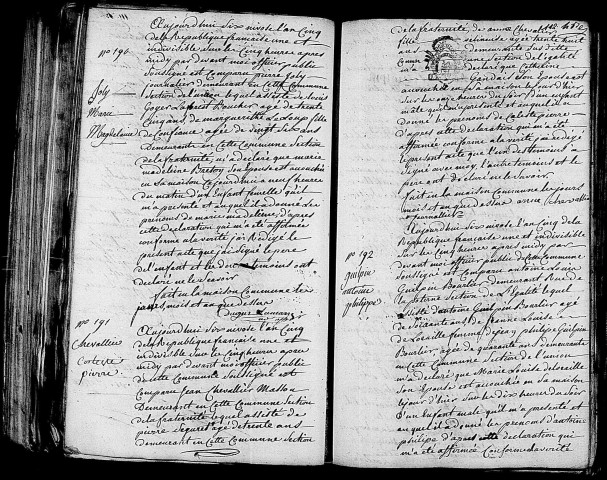 nº 190
Joly
Marie
Magdelaine
Aujourdhui six nivose l'an Cinq
de la Republique francaise une et
indivisible sur les Cinq heures apres
midy par devant moi officier public
Soussigné est Comparu pierre Joly
journalier demeurant en Cette Commune
Section de l'union lequel assisté de louis
Goyer Laurent Boucher agé de trente
Cinq ans de marguerite Le Loup fille
de Confiance agée de vingt six ans
Demeurants en Cette Commune Section
de la fraternité, m'a declaré que marie
madeleine Bretoy Son Epouse est accouchée
en Sa maison Cejourdhui a neuf heures
du matin d'un Enfant femelle qu'il
m'a presenté et auquel il a donné Les
prenoms de marie madeleine, d'apres
Cette declaration qui m'a été affirmée
Conforme a la verité j'ai Redigé le
present acte que j'ai Signé le pere
de l'enfant et les deux temoins ont
declaré ne le Savoir
fait en la maison Commune les
jour, mois et an que dessus
nº 191
Chevallier
pierre
Aujourdhui Six nivose l'an Cinq
de la Republique francaise une et
indivisible Sur les Cinq heures apres
midy par devant moi officier public
de Cette Commune Soussigné est
Comparu Jean Chevallier Masson
Demeurant en Cette Commune Section
de la fraternité lequel assisté de
pierre Seguret agé de trente ans
demeurant en Cette Commune Section
de la fraternité, de anne Chevallier
fille agée trente huit
ans demeurante Susditte
Commune Section de l'egalité
m'a declaré que Catherine
Gandais Son Epouse est
accouchée en Sa maison le jour d'hier
Sur les onze heures du Soir d'un Enfant
male qu'il m'a presenté et auquel il a
donné les prenoms de pierre
D'apres Cette declaration qui m'a été
affirmée conforme a la verité j'ai Redigé
le present acte que l'un des temoins a
Signé avec moy, l'autre temoin et le
pere ont declaré ne le Savoir.
fait en la maison Commune les jour
mois et an que dessus anne Chevallier
nº 192
Guilpin
antoine
philippe
Aujourdhui Six nivose l'an Cinq de la
Republique francaise une et indivisible
Sur les Cinq heures apres midy par
devant moi officier public de Cette Commune
Soussigné est Comparu antoine Louis
Guilpin Bourlier demeurant Rue de
Section de L'Egalité lequel
assisté d'antoine Guilpin Bourlier agé
de Soixante ans de Jeanne Louise
philippe Guilpin
Bourlier, agée de quarante ans demeurants
en Cette Commune Section de l'union
m'a declaré que Marie Louise
Son Epouse est accouchée en Sa maison
le jour d'hier Sur les dix heures du Soir
d'un Enfant male qu'il m'a presenté et
auquel il a donné les prenoms d'antoine
philippe d'apres Cette declaration qui
m'a été affirmée Conforme a la verité